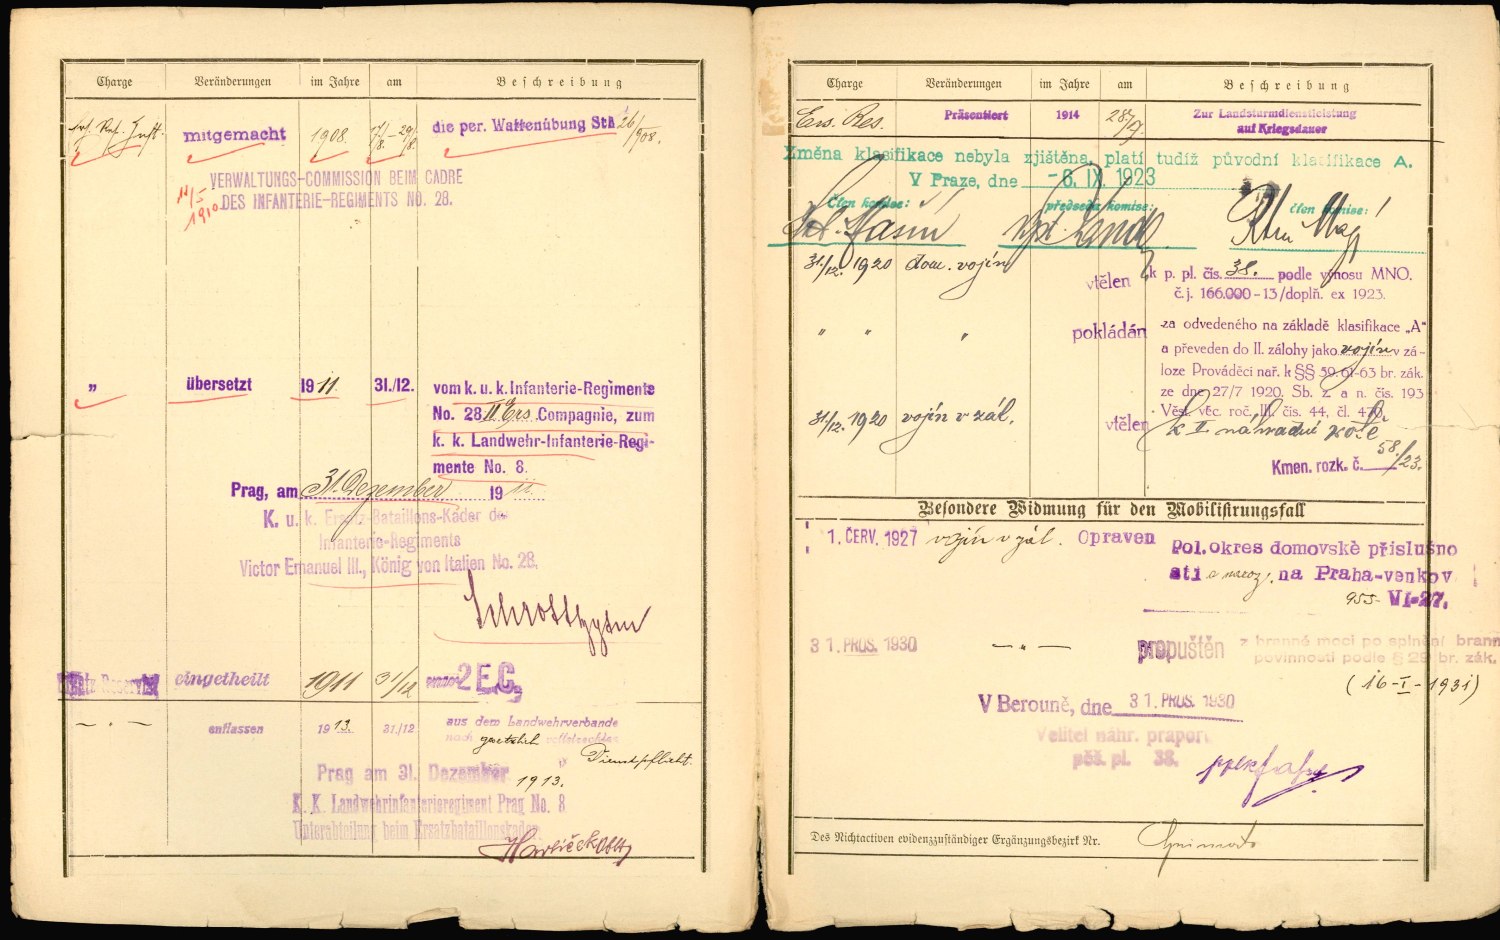 Charge Veränderungen im Jahre am Beschreibung
mitgemacht 1908 die per. Waffenübung Stk 26/908.
VERWALTUNGS-COMMISSION BEIM CADRE
DES INFANTERIE-REGIMENTS NO. 28.
" übersetzt 1911 31./12. vom k. u. k. Infanterie-Regimente
No. 28 II Ers Compagnie, zum
k. k. Landwehr-Infanterie-Regi-
mente No. 8.
Prag, am 31. Dezember 1911.
K. u. k. Ersatz-Bataillons-Kader des
Infanterie-Regiments
Victor Emanuel III., König von Italien No. 28.
Ersatz Reservist eingetheilt 1911 31/12 2 E.C.
— " — entlassen 1913 31./12. aus dem Landwehrverbande
nach gesetzlich vollstreckter
Dienstpflicht.
Prag am 31. Dezember 1913.
K. K. Landwehrinfanterieregiment Prag No. 8
Unterabteilung beim Ersatzbataillonskader
Havlíček Oblt
Charge Veränderungen im Jahre am Beschreibung
Ers. Res. Präsentiert 1914 28/7. Zur Landsturmdienstleistung
auf Kriegsdauer
Změna klasifikace nebyla zjištěna, platí tudíž původní klasifikace A.
V Praze, dne -6. IX 1923
Člen komise: předseda komise: člen komise:
31./12. 1920 dom. vojín vtělen k p. pl. čís. 38. podle výnosu MNO.
č.j. 166.000-13/doplň. ex 1923.
" " " pokládán za odvedeného na základě klasifikace „A"
a převeden do II. zálohy jako vojín v zá-
loze Prováděcí nař. k §§ 59-61-63 br. zák.
ze dne 27/7 1920. Sb. z. a n. čís. 193
Věst. věc. roč. III. čís. 44, čl. 470.
31/12. 1920 vojín v zál. vtělen k II. náhradní rotě
Kmen. rozk. č. 58./23.
Besondere Widmung für den Mobilisirungsfall
1. ČERV. 1927 vojín v zál. Opraven Pol. okres domovské příslušno
sti na Praha-venkov
955- VI-27.
31. PROS. 1930 — " — propuštěn z branné moci po splnění brann
povinnosti podle § 29 br. zák.
(16-I-1931)
V Berouně, dne 31. PROS. 1930
Velitel náhr. praporu
pěš. pl. 38.
Des Nichtactiven evidenzzuständiger Ergänzungsbezirk Nr.